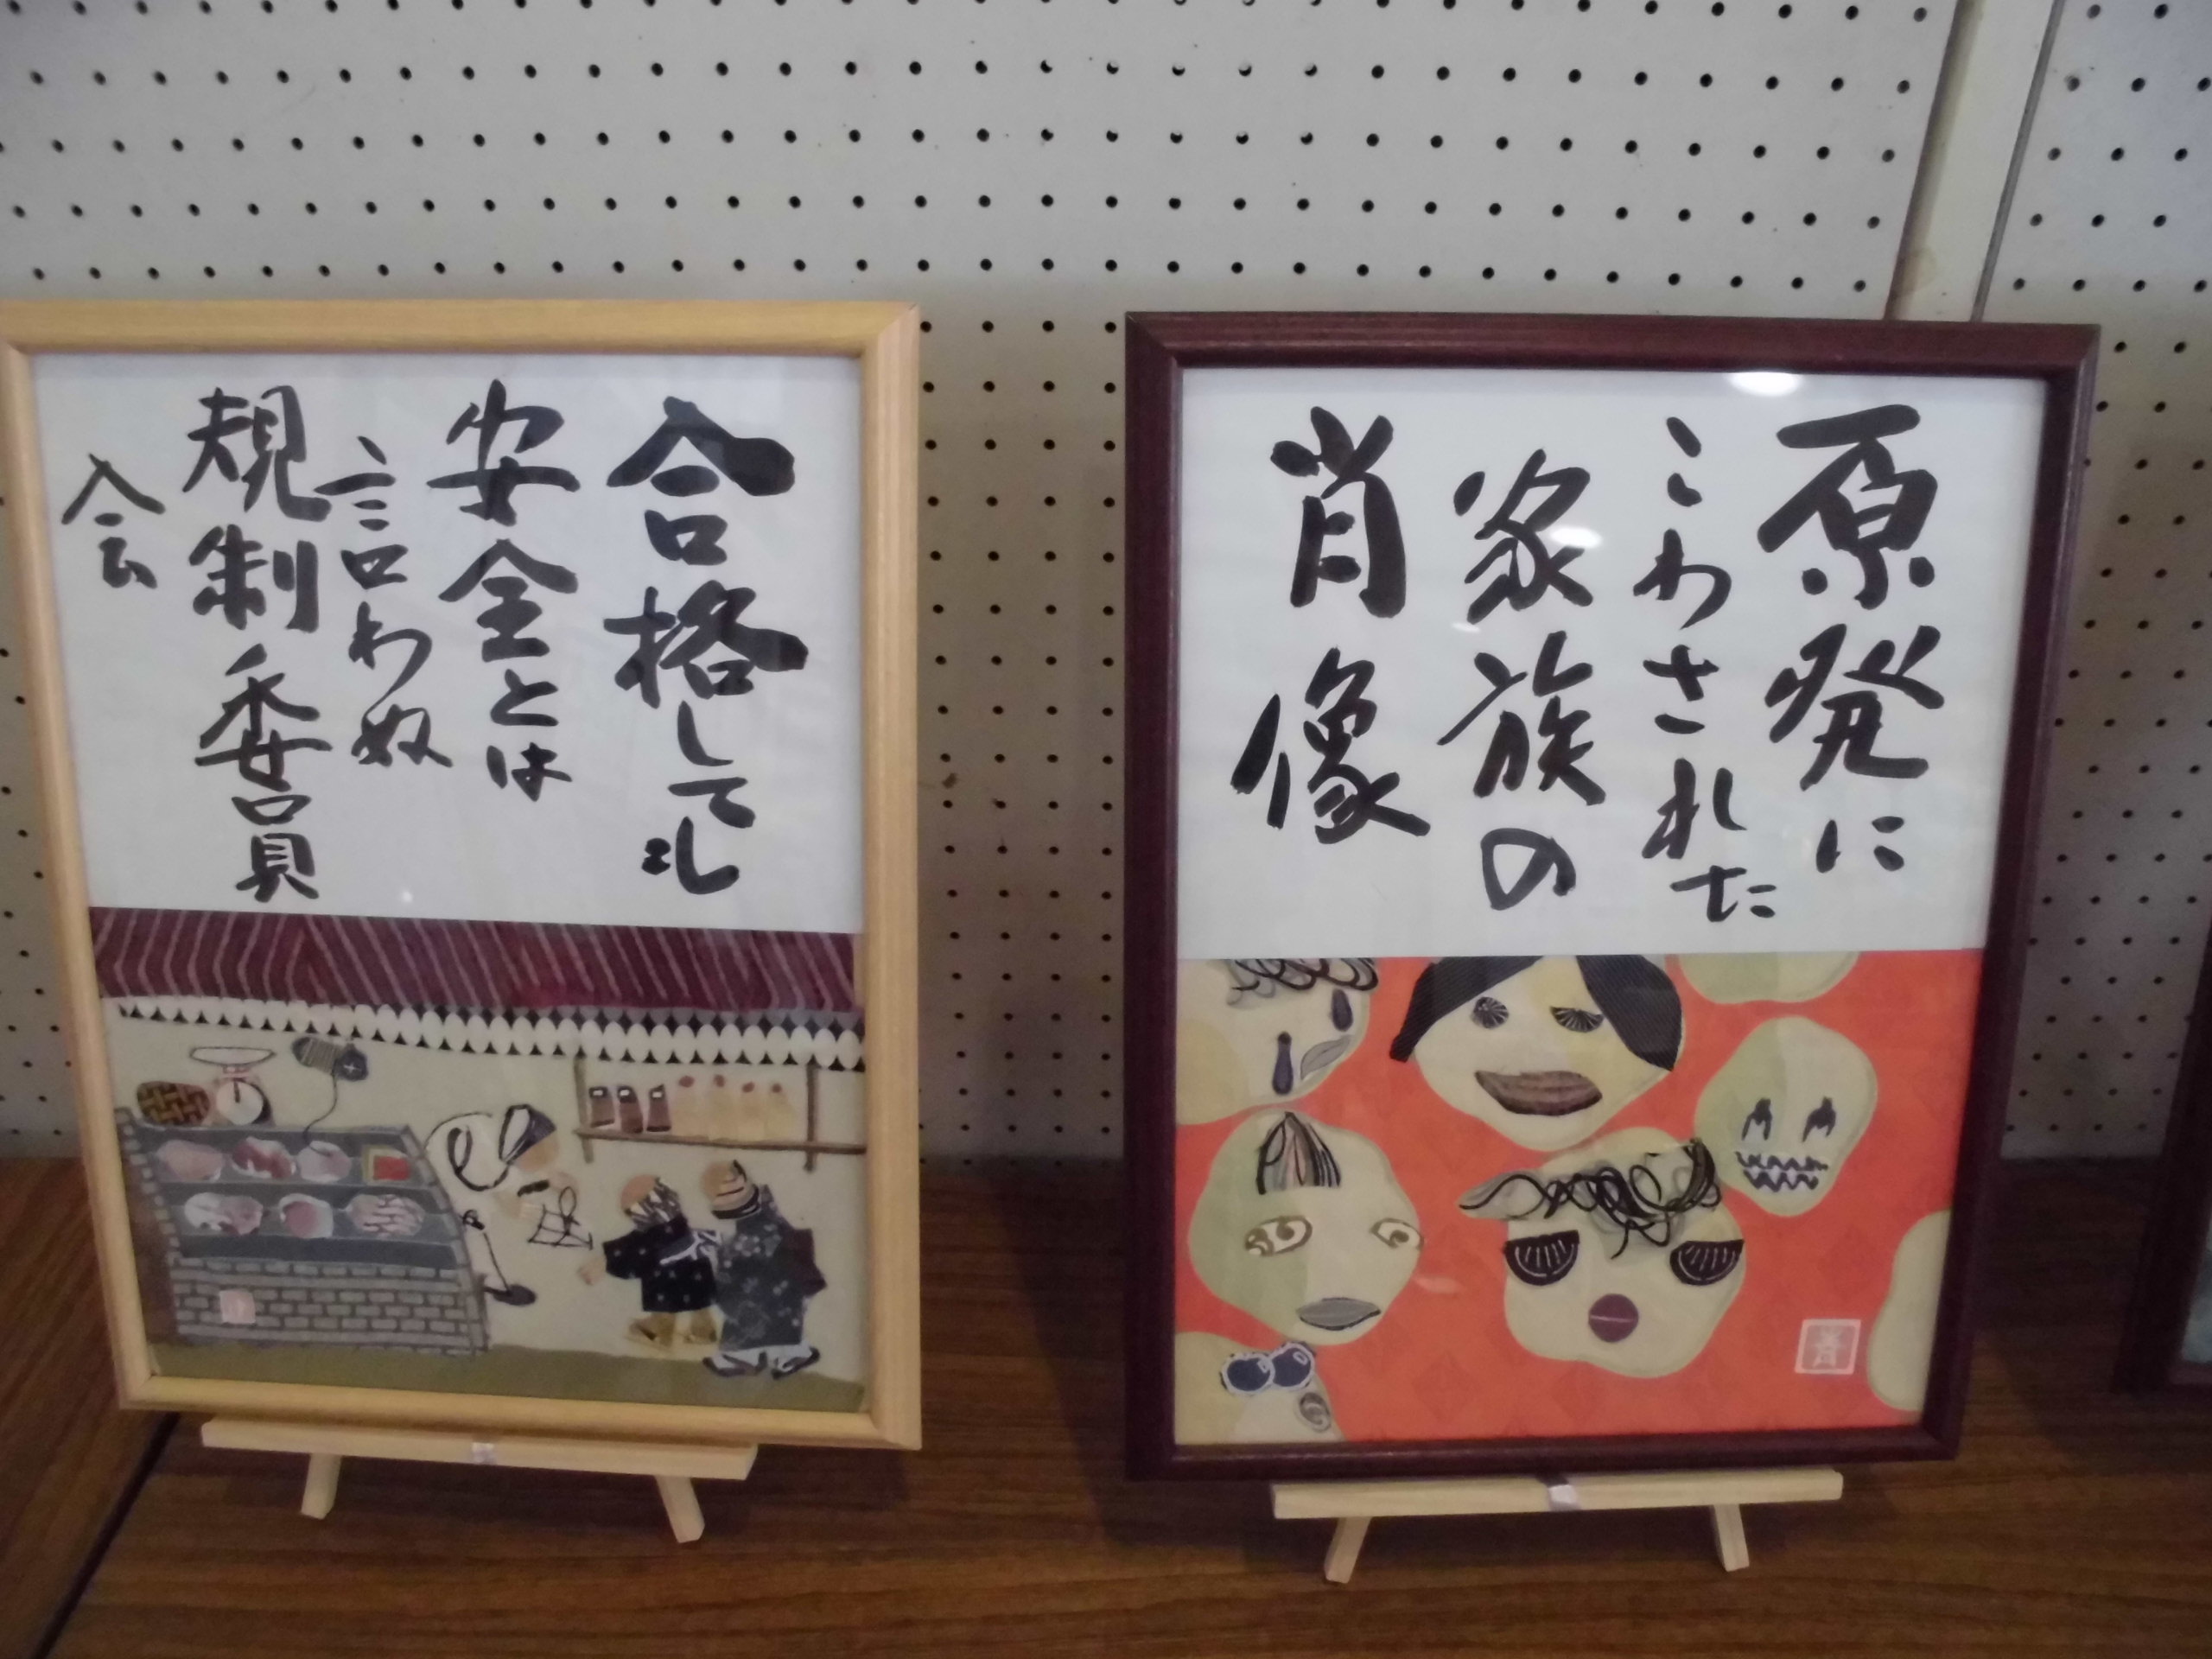 合格しても
安全とは
言わぬ
規制委員
会
原発に
こわされた
家族の
肖像